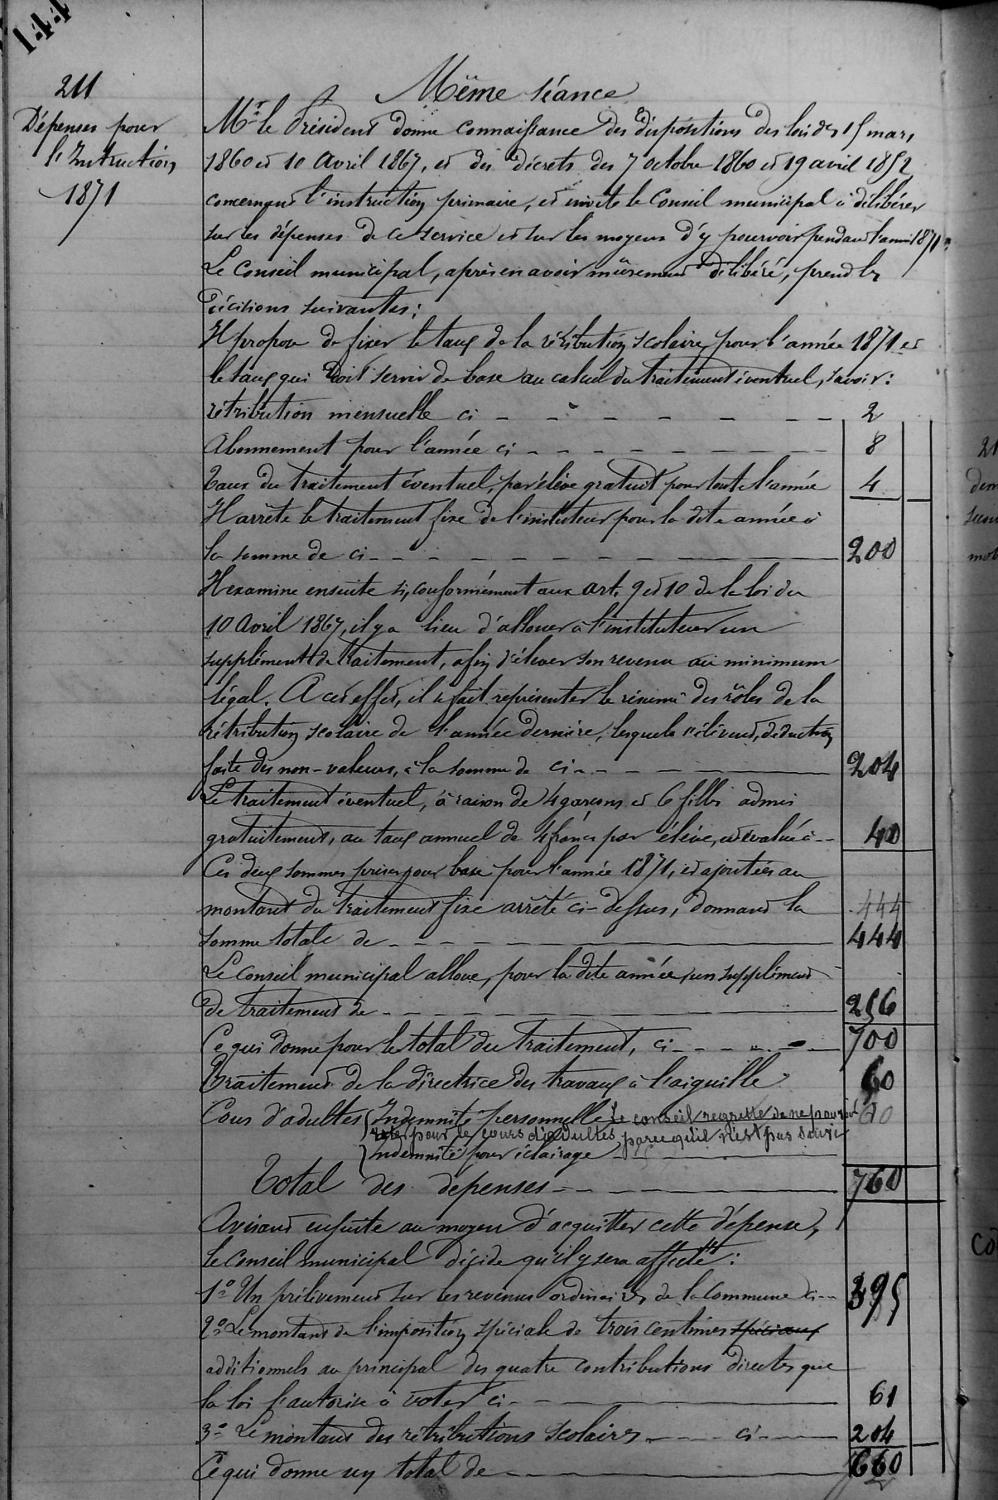 144
211
Dépenses pour
l'Instruction
1871
Même séance
Mr. le Président donne connaissance des dispositions des lois des 15 mars
1860 et 10 Avril 1867, et des décrets des 7 octobre 1860 et 19 avril 1852
concernant l'instruction primaire, et invite le Conseil municipal à délibérer
sur les dépenses de ce service et sur les moyens d'y pourvoir pendant l'année 1871.
Le Conseil municipal, après en avoir mûrement délibéré, prend les
décisions suivantes:
Il propose de fixer le taux de la rétribution scolaire, pour l'année 1871 et
le taux qui doit servir de base au calcul du traitement éventuel, savoir:
rétribution mensuelle ci - - - - - - - 2
Abonnement pour l'année ci - - - - - - - 8
Taux du traitement éventuel, par élève gratuit pour toute l'année 4
Il arrête le traitement fixe de l'instituteur pour la dite année à
la somme de ci - - - - - - 200
Il examine ensuite si, conformément aux art. 9 et 10 de la loi du
10 Avril 1867, il y a lieu d'allouer à l'instituteur un
supplément de traitement, afin d'élever son revenu au minimum
légal. A cet effet, il se fait représenter le résumé des rôles de la
rétribution scolaire de l'année dernière, lesquels s'élèvent, déduction
faite des non-valeurs, à la somme de ci - - - - 204
Le traitement éventuel, à raison de 4 garçons et 6 filles admis
gratuitement, au taux annuel de 4 francs par élève, est évalué à - - 40
Ces deux sommes prises pour base pour l'année 1871, et ajoutées au
montant du traitement fixe arrêté ci-dessus, donnent la 444
somme totale de - - - - - 444
Le Conseil municipal alloue, pour la dite année, un supplément
de traitement de - - - - - - 256
Ce qui donne pour le total du traitement, ci - - - - 700
Traitement de la directrice des travaux à l'aiguille 60
Cours d'adultes { Indemnité personnelle Le conseil regrette de ne pouvoir 60
voter pour le cours d'adultes parce qu'il n'est pas suivi
Indemnité pour éclairage
Total des dépenses - - - - 760
Avisant ensuite au moyen d'acquitter cette dépense,
le Conseil municipal décide qu'il y sera affecté:
1º Un prélèvement sur les revenus ordinaires de la Commune ci - - 395
2º Le montant de l'imposition spéciale de trois centimes spéciaux
additionnels au principal des quatre contributions directes que
la loi l'autorise à voter ci - - - 61
3º Le montant des rétributions scolaires - - - ci - - 204
Ce qui donne un total de - - - - 660